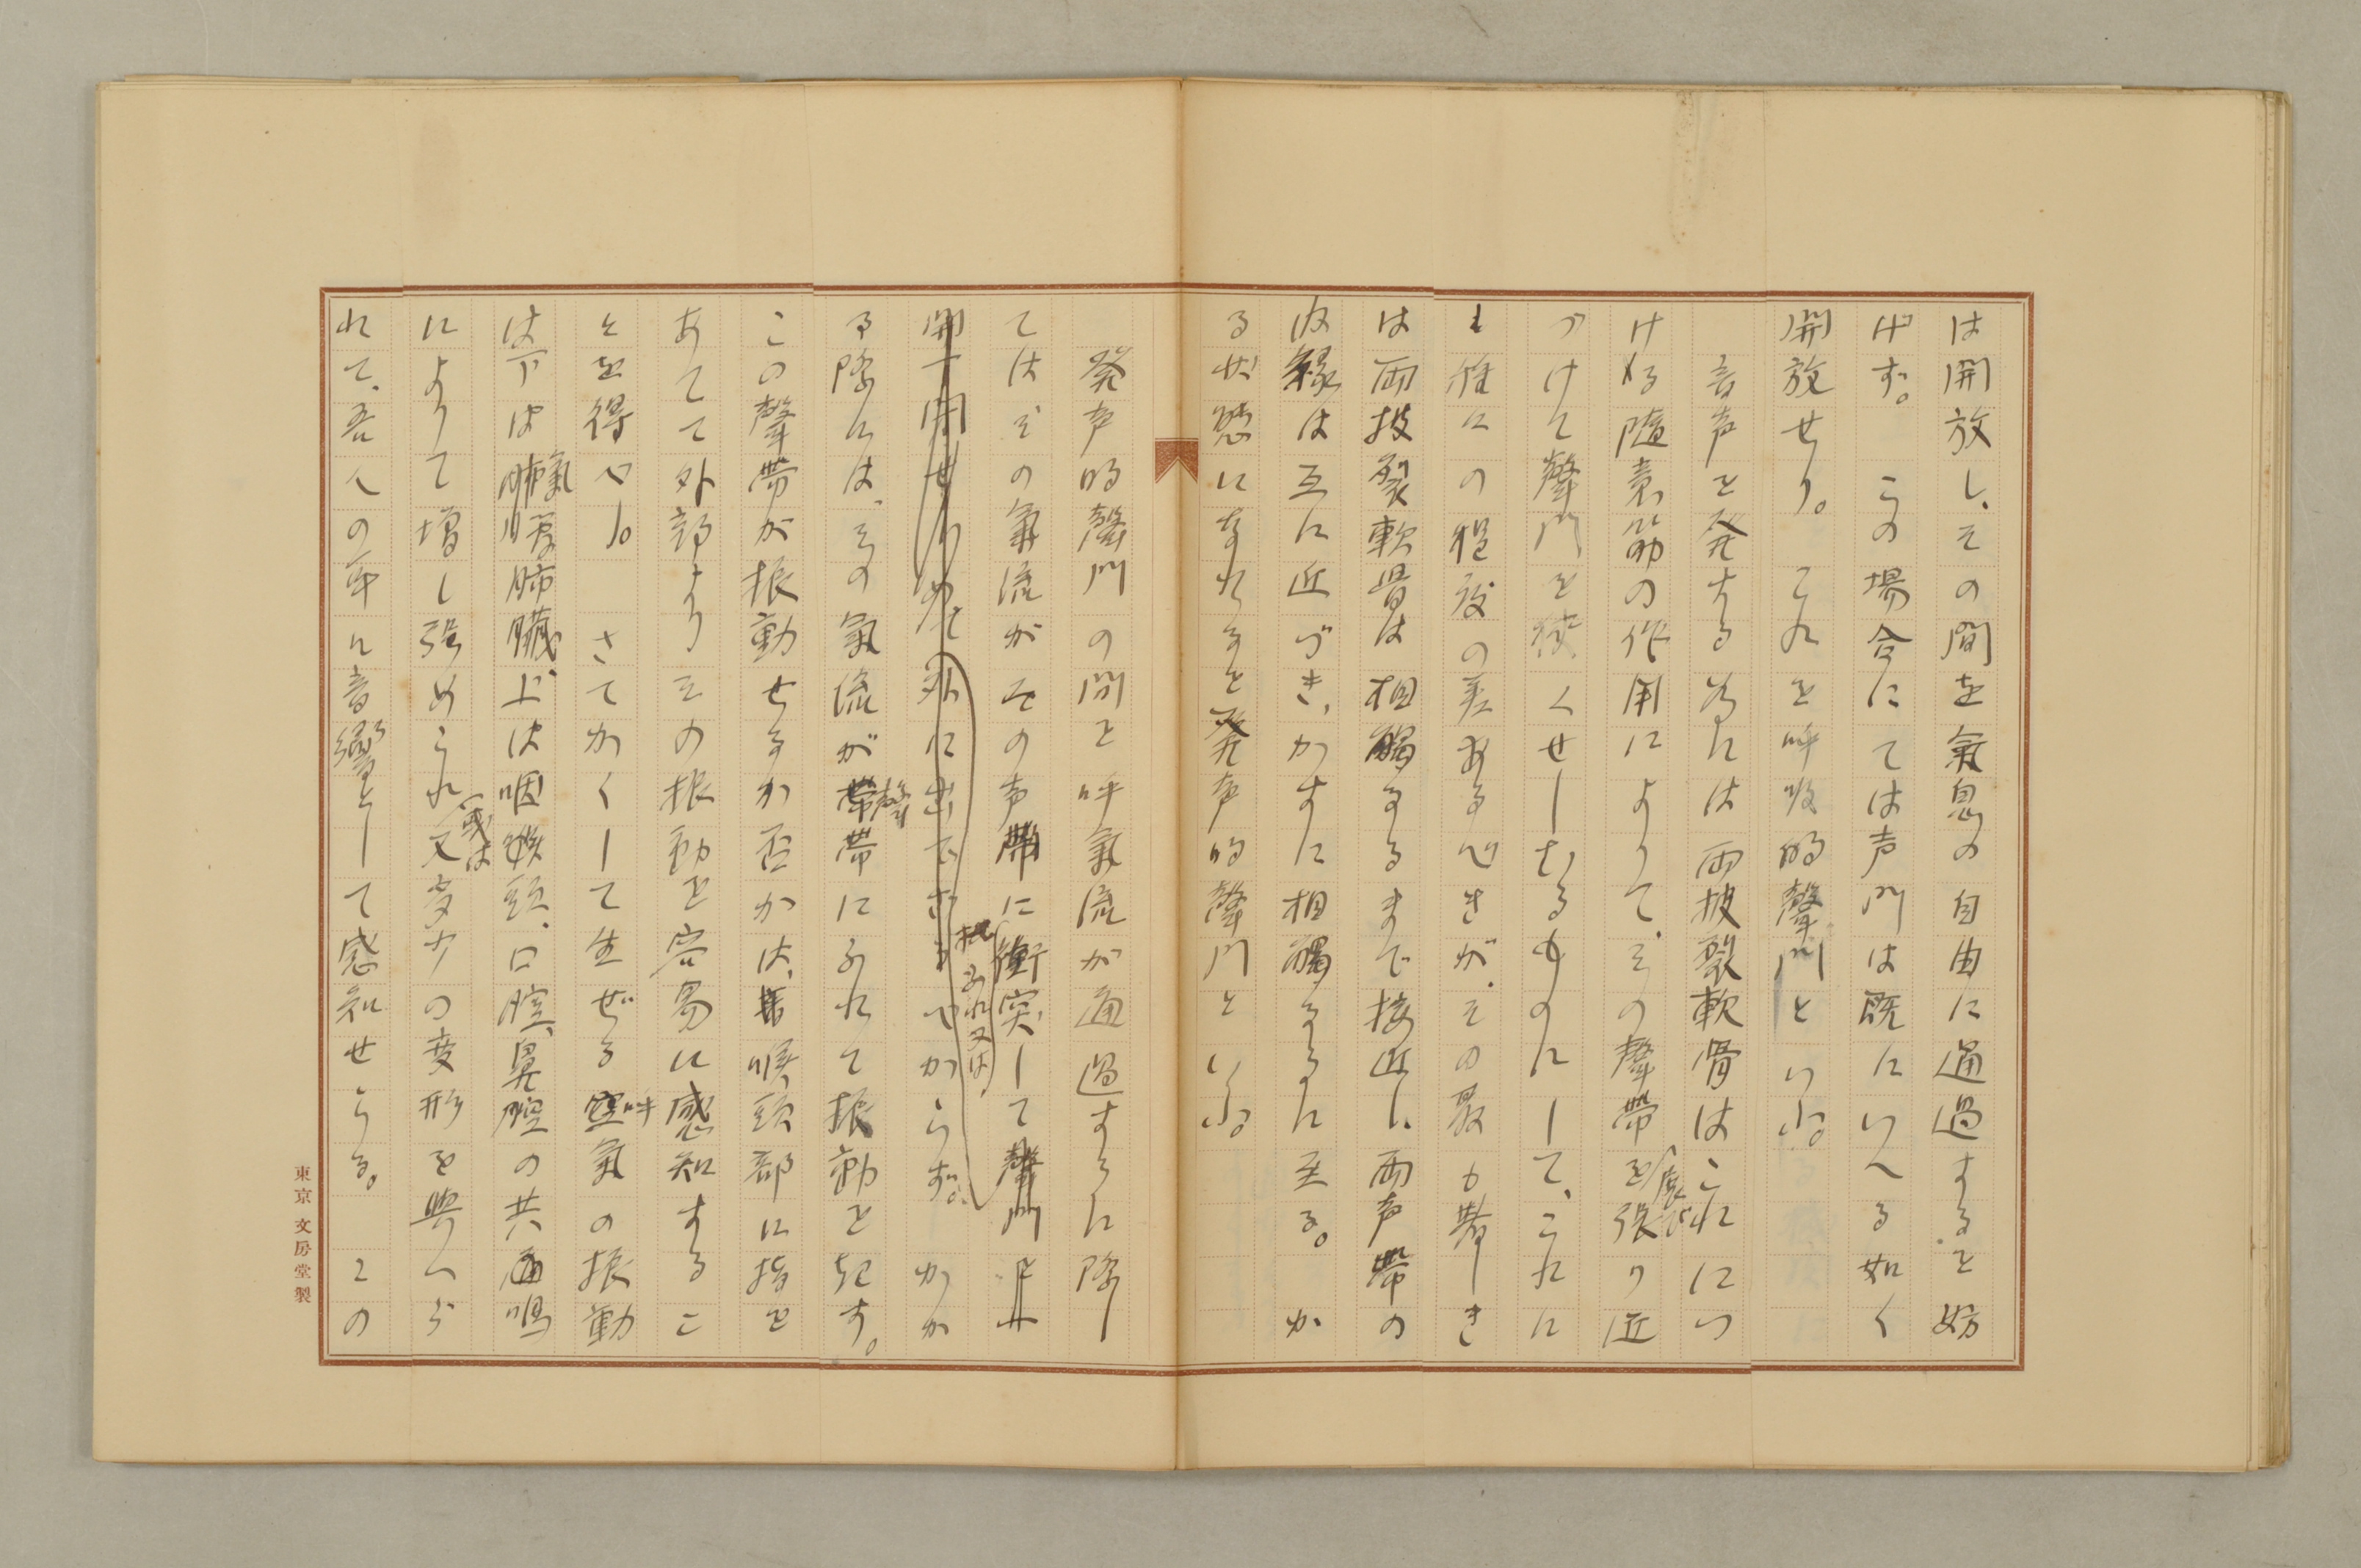 は開放し、その間を氣息の自由に通過するを妨
げず。　この場合にては声門は既にいへる如く
開放せり。　これを呼吸的聲門といふ。
音声を発する為には両披裂軟骨はこれにつ
ける随意筋の作用によりて、その聲帯を展び張り近
づけて聲門を狭くせしむるものにして、これに
も種々の程度の差あるべきが、その最も著しき
は両披裂軟骨は相觸るるまで接近し、両声帯の
内縁は互に近づき、かすに相觸るるに至る。　か
る状態になれるを発声的聲門といふ。
発声的聲門の間を呼氣流が通過するに際し
てはその氣流がその声帯に觸れ又は衝突して
出でざるべからず。　かか
る際には、その氣流が聲帯にふれて振動を起す。
この聲帯が振動せるか否かは、喉頭部に指を
あてて外部よりその振動を容易に感知するこ
とを得べし。　さてかくして生ぜる呼氣の振動
は下は氣腫肺臓、上は咽喉頭、口腔、鼻腔の共鳴
によりて増し強められ、或は又多少の変形を與へら
れて、吾人の耳に音響として感知せらる。　この
東京 文房堂製